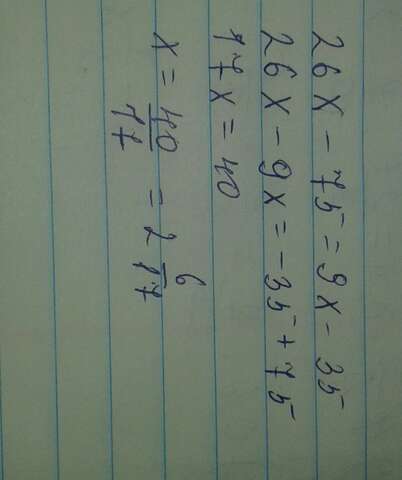 26x - 75 = 9x - 35
26x - 9x = -35 + 75
17x = 40
x = 40/17 = 2 6/17